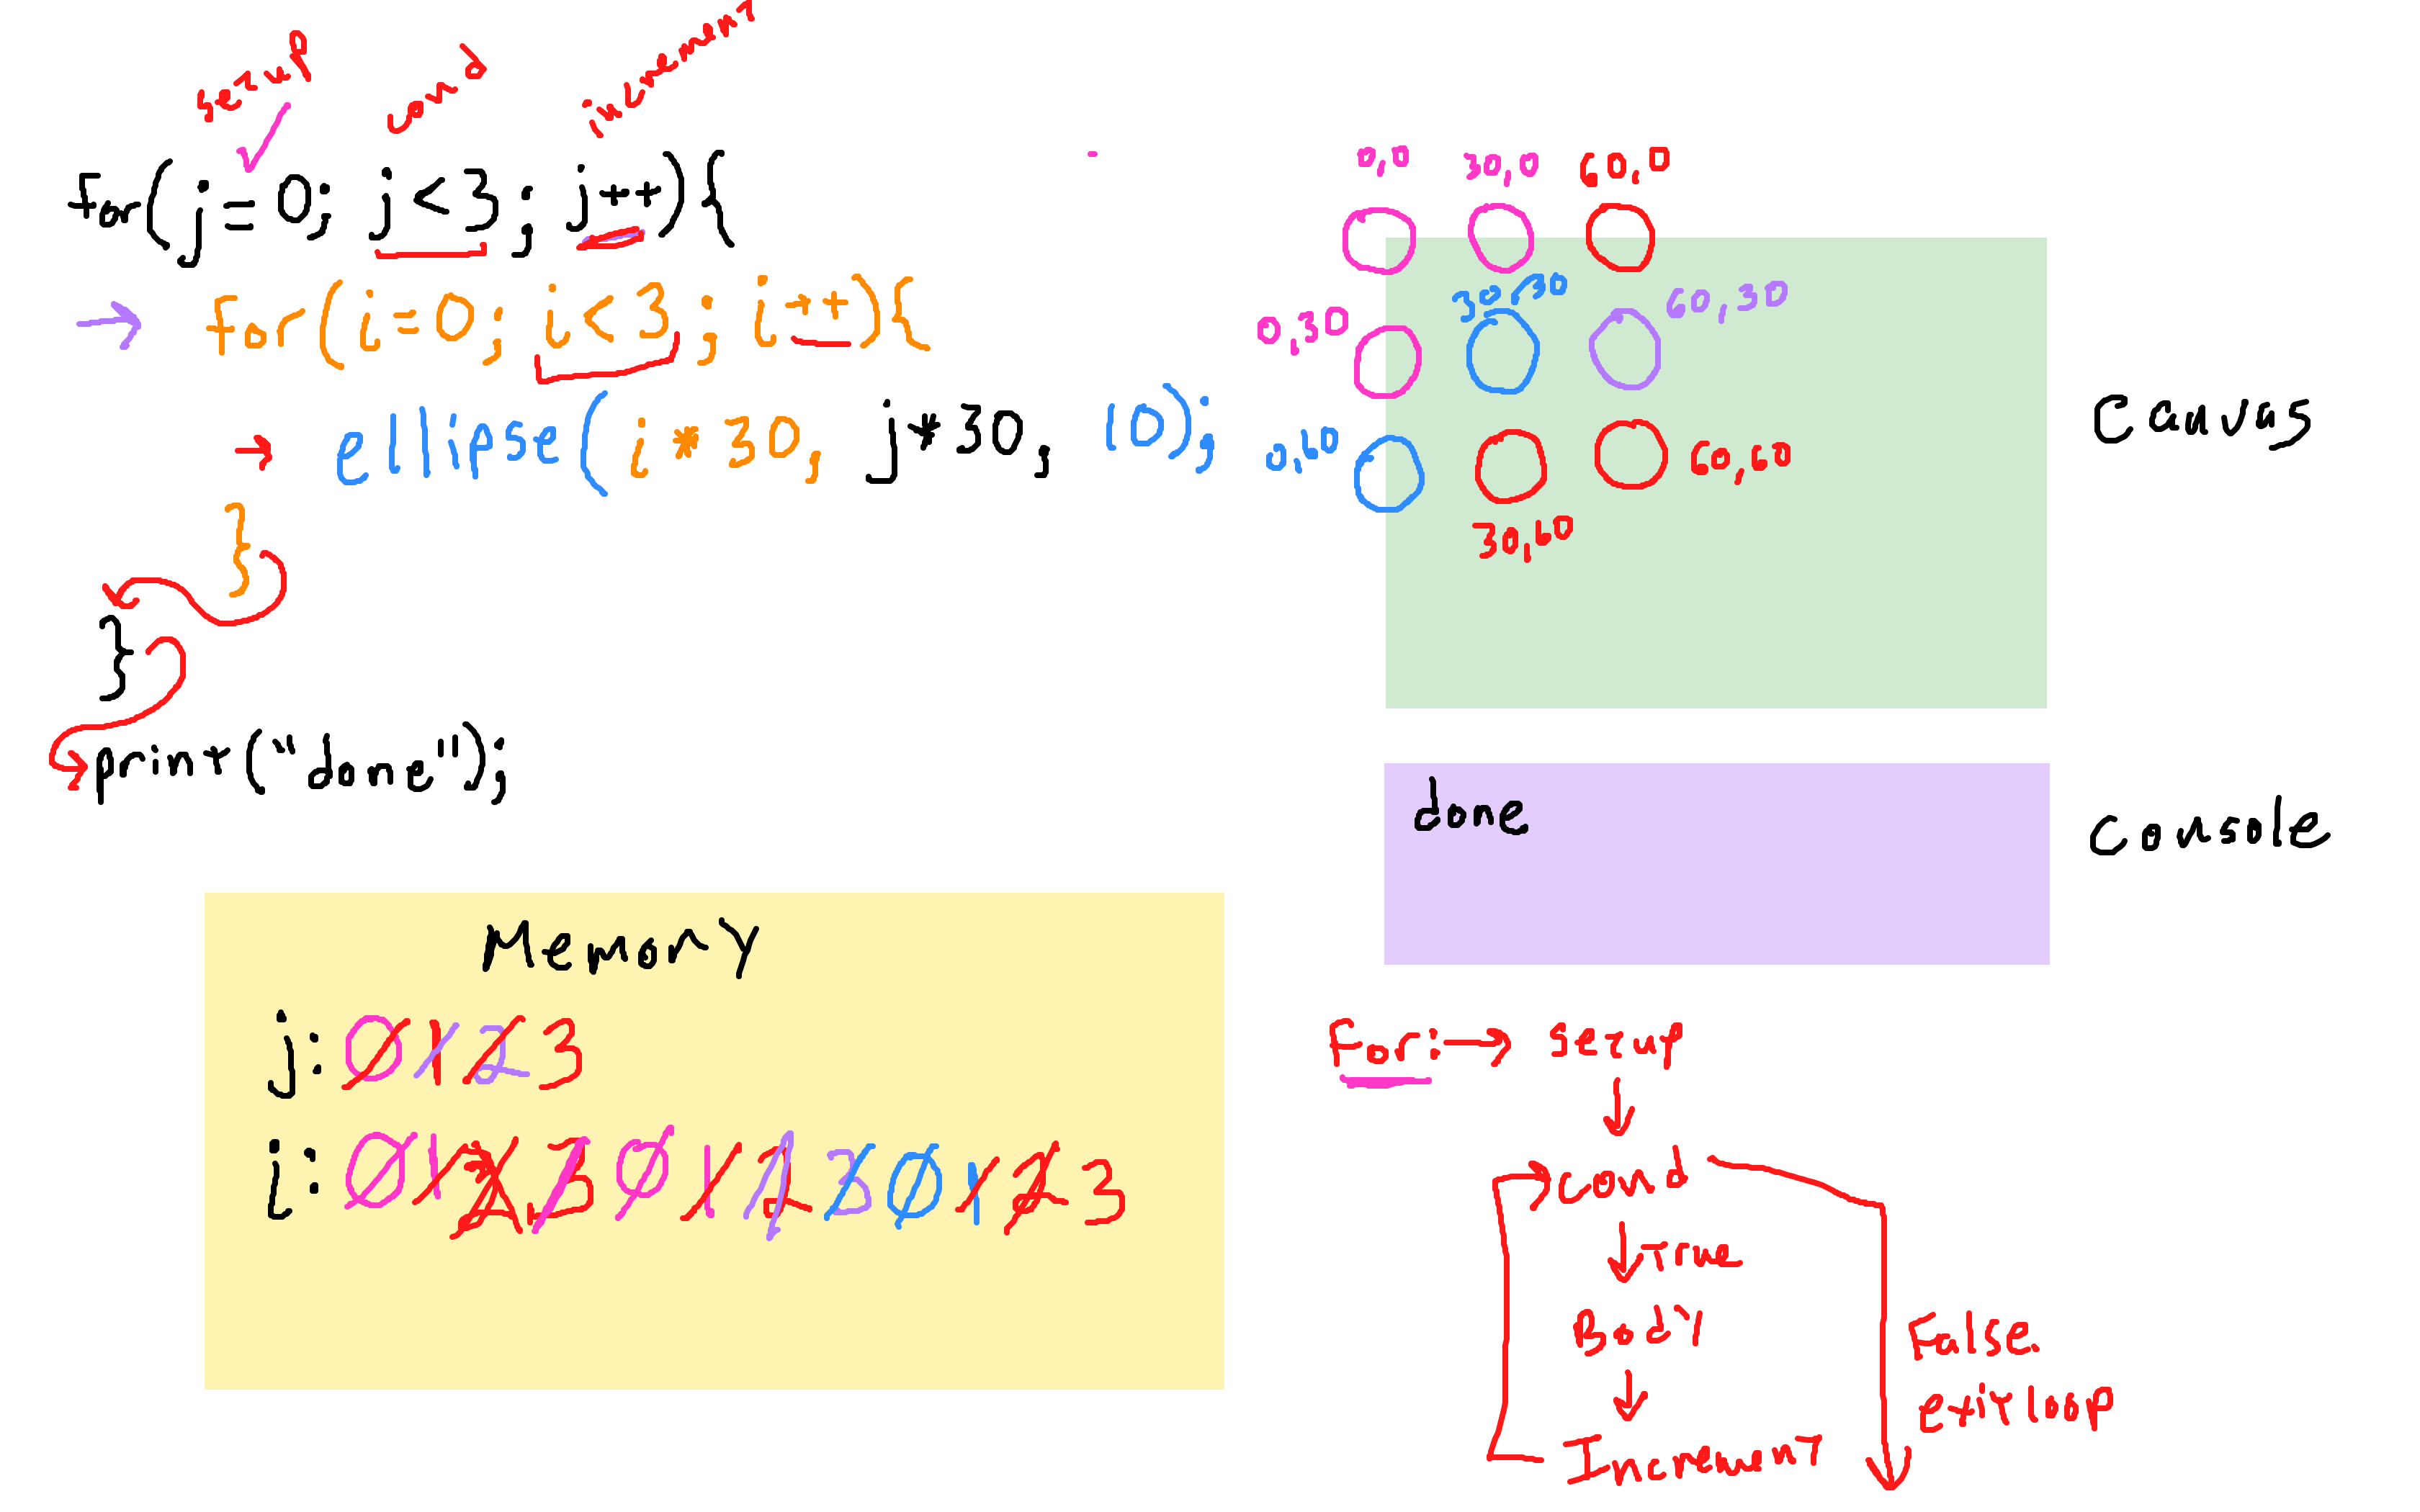 setup cond increment
for(j=0; j<3; j++){
for(i=0; i<3; i++){
ellipse(i*30, j*30, 10);
}
}
print("done");
0,0 30,0 60,0
0,30 30,30 60,30
0,60 60,60
30,60
Canvas
done
Console
Memory
j: 0 1 2 3
i: 0 1 2 3 0 1 2 3 0 1 2 3
For: → setup
cond
True
Body
Increment
False
exit loop